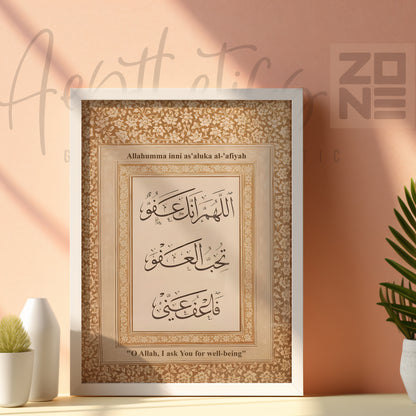 Aesthetics
ZO
NE
Allahumma inni as'aluka al-'afiyah
اللهم إنك عفو
تحب العفو
فاعف عني
"O Allah, I ask You for well-being"